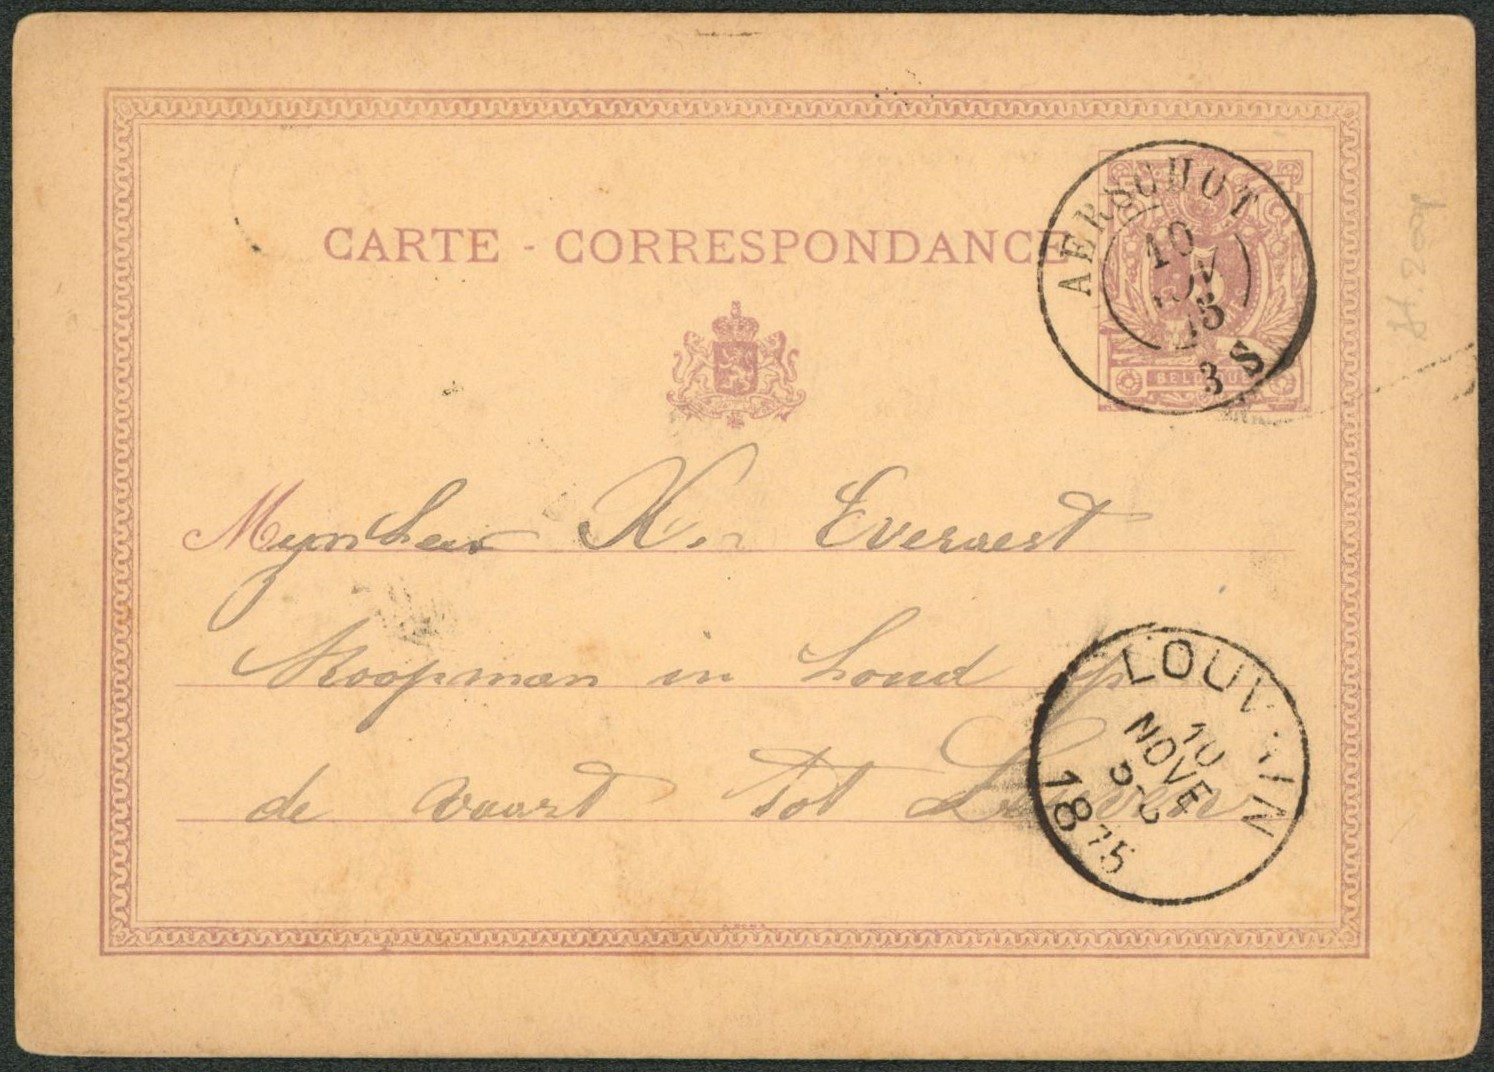 CARTE - CORRESPONDANCE
AERSCHOT
10
NOV
75
3 S
BELGIQUE
Mynheer K. Everaert
Koopman in houd op
de vaart tot Leuven
LOUVAIN
10
NOVE
1875